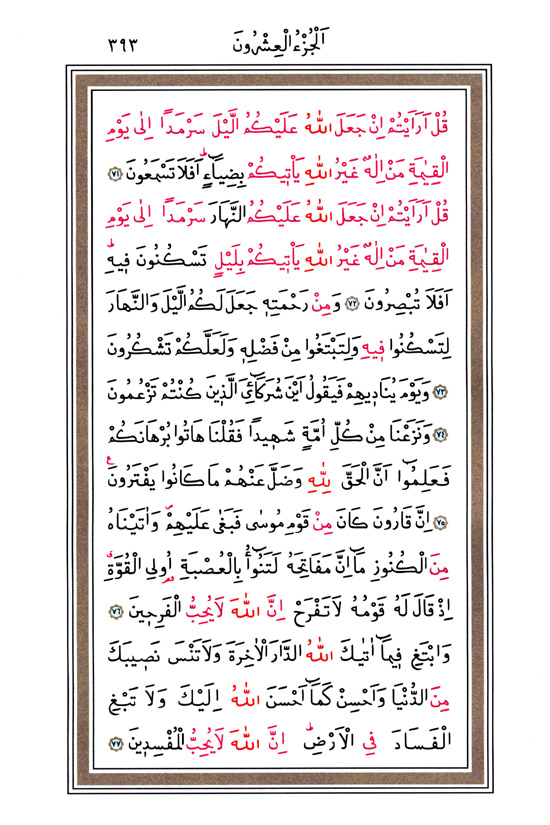 اَلْجُزْءُ الْعِشْرُونَ
٣٩٣
قُلْ اَرَاَيْتُمْ اِنْ جَعَلَ اللّٰهُ عَلَيْكُمُ الَّيْلَ سَرْمَدًا اِلٰى يَوْمِ
الْقِيٰمَةِ مَنْ اِلٰهٌ غَيْرُ اللّٰهِ يَأْتٖيكُمْ بِضِيَٓاءٍۜ اَفَلَا تَسْمَعُونَ ﴿٧١﴾
قُلْ اَرَاَيْتُمْ اِنْ جَعَلَ اللّٰهُ عَلَيْكُمُ النَّهَارَ سَرْمَدًا اِلٰى يَوْمِ
الْقِيٰمَةِ مَنْ اِلٰهٌ غَيْرُ اللّٰهِ يَأْتٖيكُمْ بِلَيْلٍ تَسْكُنُونَ فٖيهِۜ
اَفَلَا تُبْصِرُونَ ﴿٧٢﴾ وَمِنْ رَحْمَتِهٖ جَعَلَ لَكُمُ الَّيْلَ وَالنَّهَارَ
لِتَسْكُنُوا فٖيهِ وَلِتَبْتَغُوا مِنْ فَضْلِهٖ وَلَعَلَّكُمْ تَشْكُرُونَ
﴿٧٣﴾ وَيَوْمَ يُنَادٖيهِمْ فَيَقُولُ اَيْنَ شُرَكَٓاءِيَ الَّذٖينَ كُنْتُمْ تَزْعُمُونَ
﴿٧٤﴾ وَنَزَعْنَا مِنْ كُلِّ اُمَّةٍ شَهٖيدًا فَقُلْنَا هَاتُوا بُرْهَانَكُمْ
فَعَلِمُٓوا اَنَّ الْحَقَّ لِلّٰهِ وَضَلَّ عَنْهُمْ مَا كَانُوا يَفْتَرُونَ ع
﴿٧٥﴾ اِنَّ قَارُونَ كَانَ مِنْ قَوْمِ مُوسٰى فَبَغٰى عَلَيْهِمْۖ وَاٰتَيْنَاهُ
مِنَ الْكُنُوزِ مَٓا اِنَّ مَفَاتِحَهُ لَتَنُٓواُ بِالْعُصْبَةِ اُولِى الْقُوَّةِۗ
اِذْ قَالَ لَهُ قَوْمُهُ لَا تَفْرَحْ اِنَّ اللّٰهَ لَا يُحِبُّ الْفَرِحٖينَ ﴿٧٦﴾
وَابْتَغِ فٖيمَٓا اٰتٰيكَ اللّٰهُ الدَّارَ الْاٰخِرَةَ وَلَا تَنْسَ نَصٖيبَكَ
مِنَ الدُّنْيَا وَاَحْسِنْ كَمَٓا اَحْسَنَ اللّٰهُ اِلَيْكَ وَلَا تَبْغِ
الْفَسَادَ فِي الْاَرْضِۜ اِنَّ اللّٰهَ لَا يُحِبُّ الْمُفْسِدٖينَ ﴿٧٧﴾